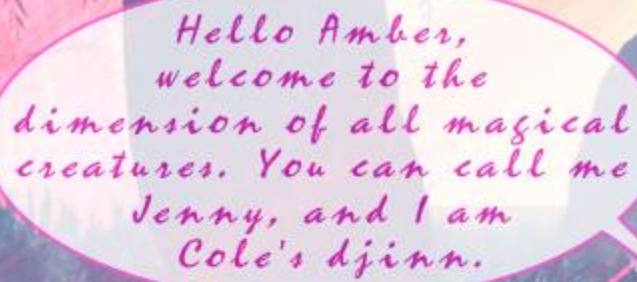 Hello Amber,
welcome to the
dimension of all magical
creatures. You can call me
Jenny, and I am
Cole's djinn.